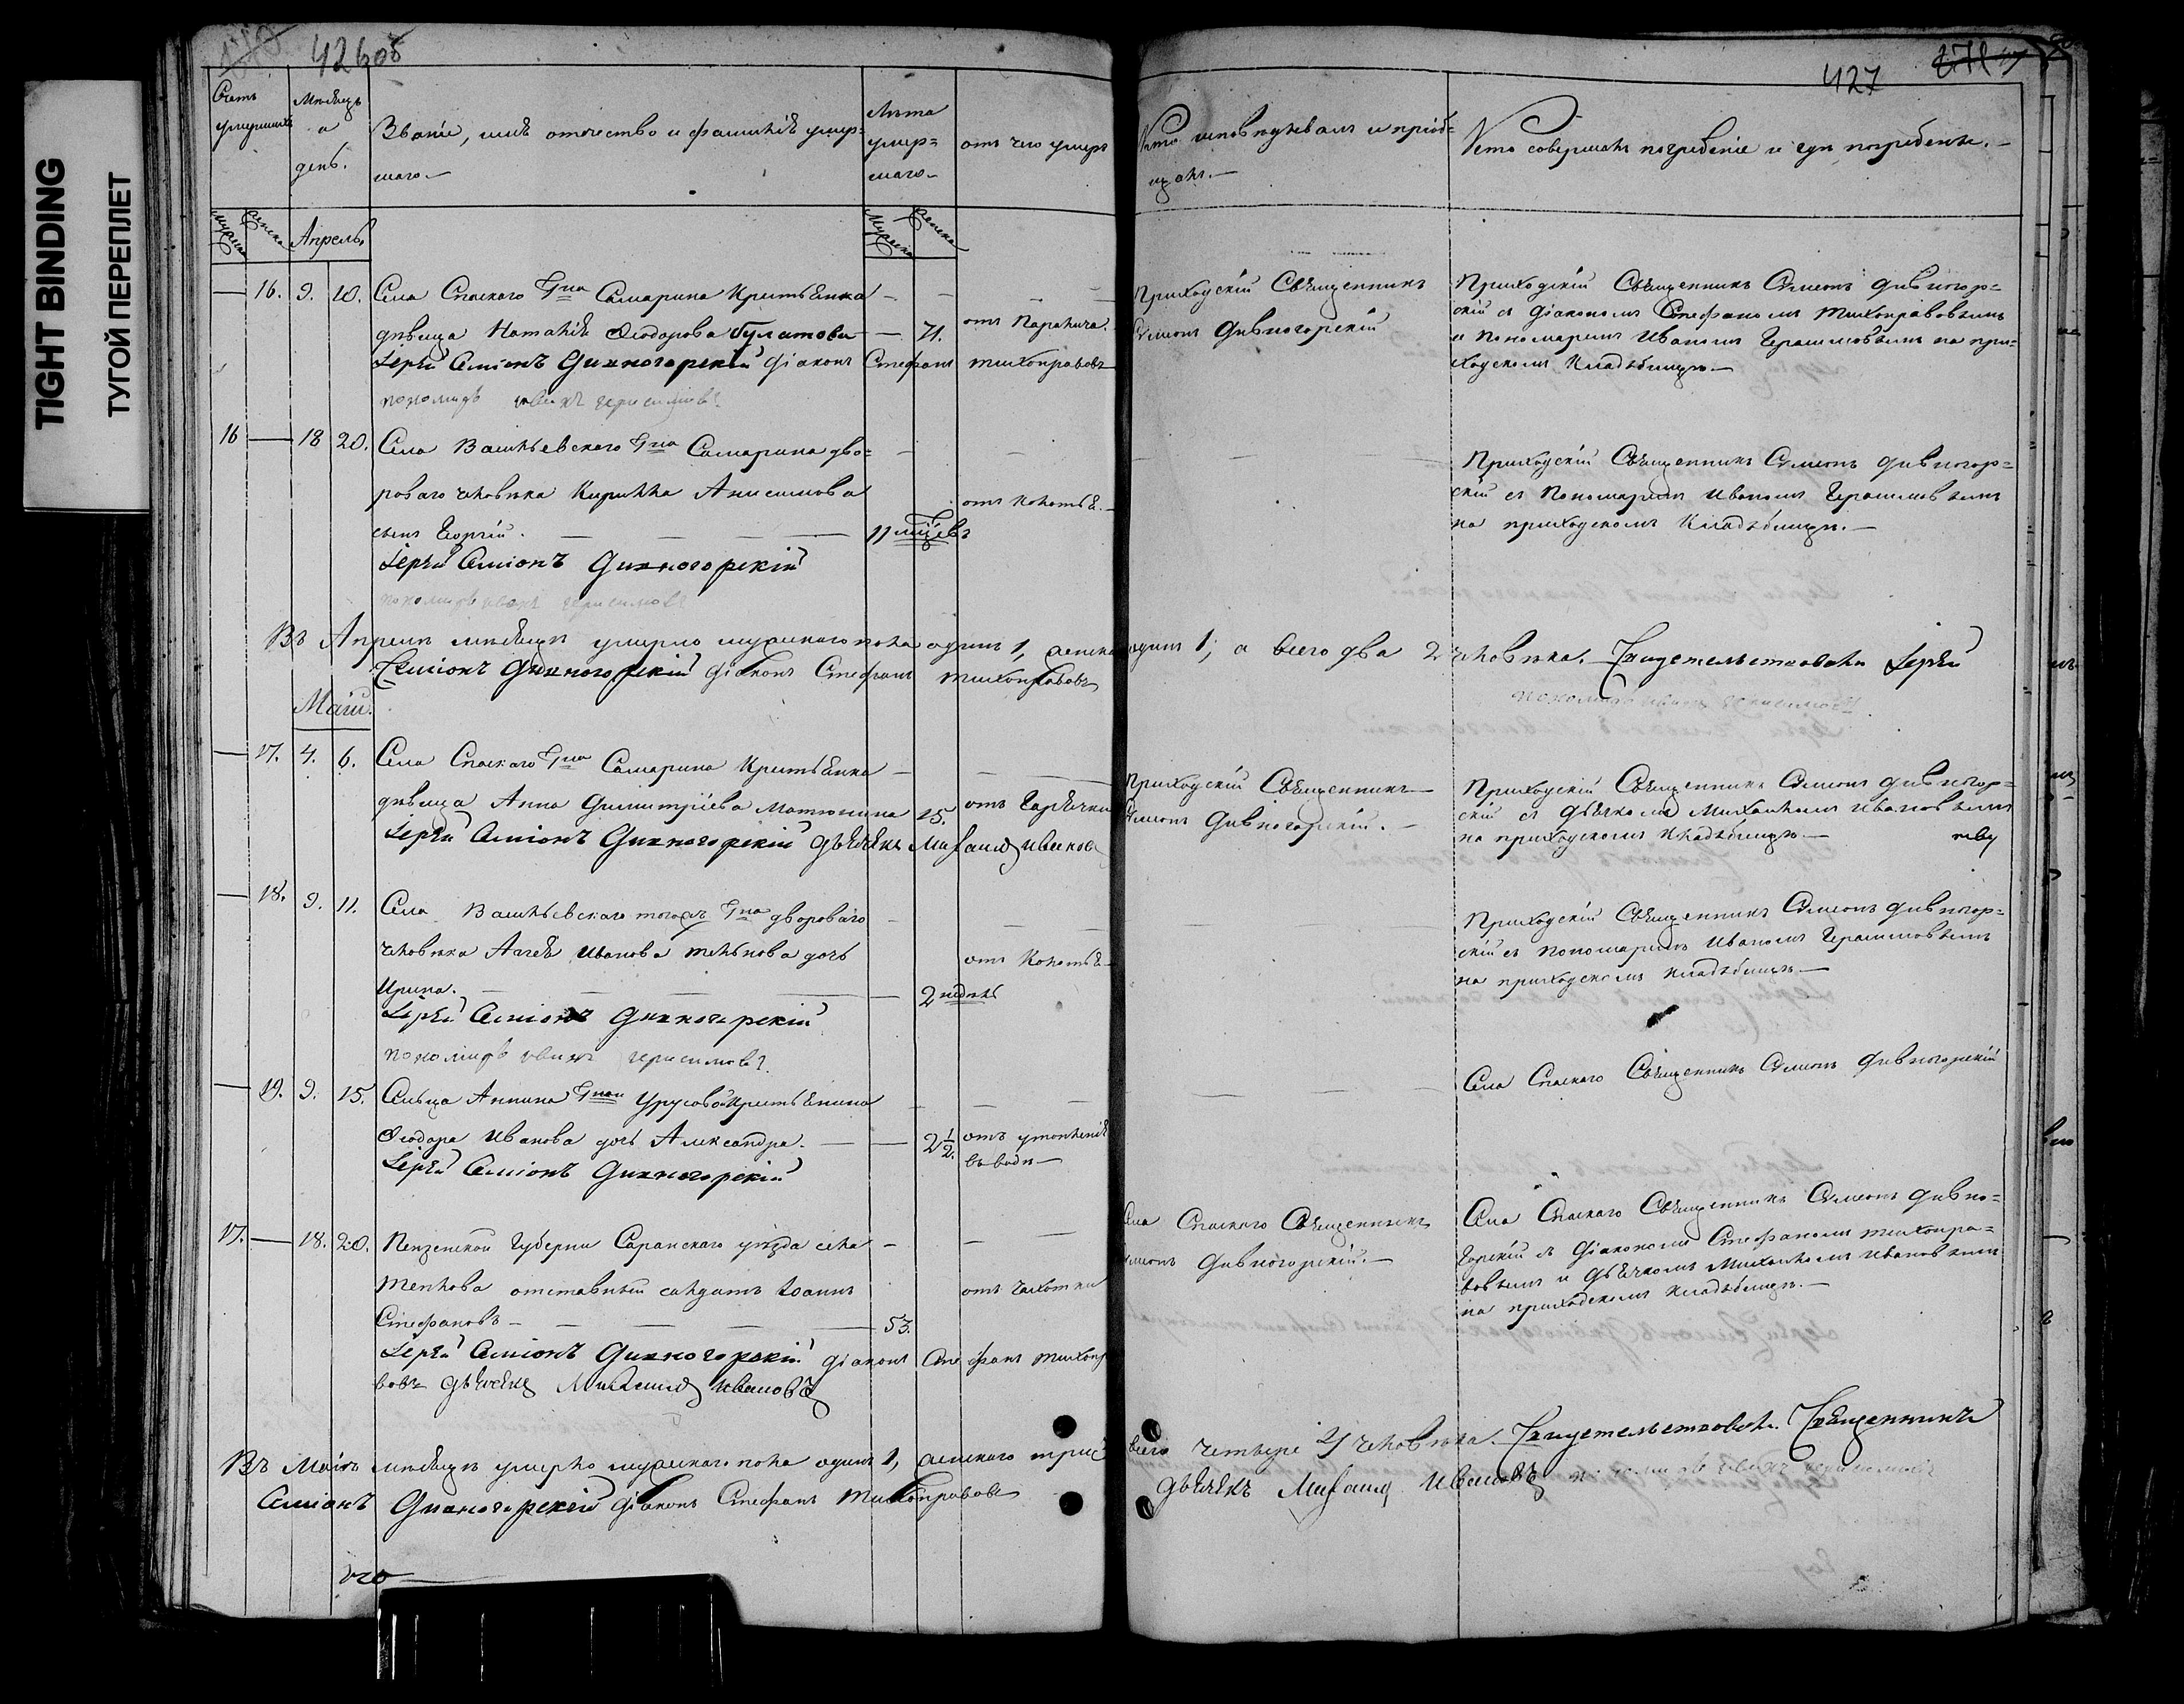 TIGHT BINDING
ТУГОЙ ПЕРЕПЛЕТ
426 об
427
Счетъ умершихъ
Мѣсяцъ и день.
Званіе, имя отечество и фамилія умер=
шаго.
Лѣта умер=
шаго
отъ чего умеръ
Кто исповѣдывалъ и пріоб=
щалъ.
Кто совершалъ погребеніе и гдѣ погребенъ.
Мужеска
Женска
Апрель.
Мужеска
Женска
16. 9. 10. Села Спаскаго Гна Самарина Крестьянка
дѣвица Наталія Ѳеодорова Булатова 71. отъ Паралича.
Іерей Симіонъ Дивногорскій Діаконъ Стефанъ Тихонравовъ
пономарь иванъ герасимовъ
Приходскій Священникъ
Симеонъ Дивногорскій
Приходскій Священникъ Симеонъ Дивногор=
скій съ Діакономъ Стефаномъ Тихонравовымъ
и Пономаремъ Иваномъ Герасимовымъ на при=
ходскомъ Кладбищѣ.
16 18 20. Села Васильевскаго Гна Самарина дво=
роваго человѣка Кирилла Анисимова
сынъ Георгій. 11 мцевъ отъ колотья.
Іерей Симіонъ Дивногорскій
пономарь иванъ герасимовъ
Приходскій Священникъ Симеонъ Дивногор=
скій съ Пономаремъ Иваномъ Герасимовымъ
на приходскомъ Кладбищѣ.
Въ Апрелѣ мѣсяцѣ умерло мужескаго пола одинъ 1, женска одинъ 1; а всего два 2 человѣка. Свидетельствовали Іерей
Симіонъ Дивногорскій Діаконъ Стефанъ Тихонравовъ
пономарь иванъ герасимовъ
Маій.
17. 4. 6. Села Спаскаго Гна Самарина Крестьянка
дѣвица Анна Димитріева Матюнина 15. отъ Горячки
Іерей Симіонъ Дивногорскій Дьячекъ Михаилъ Ивановъ
Приходскій Священникъ
Симеонъ Дивногорскій.
Приходскій Священникъ Симеонъ Дивногор=
скій съ Дьячкомъ Михаиломъ Ивановымъ
на приходскомъ Кладбищѣ.
18. 9. 11. Села Васильевскаго тогожъ Гна двороваго
человѣка Аггея Иванова дочь
Ирина. 2 недѣль отъ Колотья
Іерей Симіонъ Дивногорскій
пономарь иванъ герасимовъ
Приходскій Священникъ Симеонъ Дивногор=
скій съ Пономаремъ Иваномъ Герасимовымъ
на приходскомъ Кладбищѣ.
19. 9. 15. Сельца Аннина Гжи Урусовой Крестьянина
Ѳеодора Иванова дочь Александра. 2 1/2. отъ утопленія
въ водѣ
Іерей Симіонъ Дивногорскій
Села Спаскаго Священникъ Симеонъ Дивногорскій
17. 18. 20. Пензенской Губерніи Саранскаго уѣзда села
отставный салдатъ Іоаннъ
Стефановъ 53. отъ чахотки
Іерей Симіонъ Дивногорскій Діаконъ Стефанъ Тихонра
вовъ Дьячекъ Михаилъ Ивановъ
Села Спаскаго Священникъ
Симеонъ Дивногорскій.
Села Спаскаго Священникъ Симеонъ Дивно=
горскій съ Діакономъ Стефаномъ Тихонра=
вовымъ и Дьячкомъ Михаиломъ Ивановымъ
на приходскомъ Кладбищѣ.
Въ Маіѣ мѣсяцѣ умерло мужескаго пола одинъ 1, женскаго три всего четыре 4 человѣка. Свидетельствовали Священникъ
Симіонъ Дивногорскій Діаконъ Стефанъ Тихонравовъ Дьячекъ Михаилъ Ивановъ пономарь иванъ герасимовъ